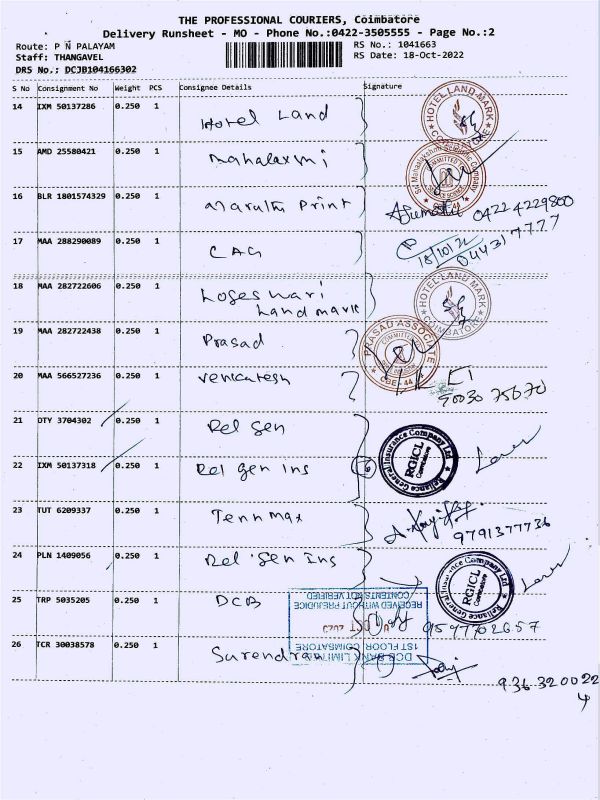 THE PROFESSIONAL COURIERS, Coimbatore
Delivery Runsheet - MO - Phone No.:0422-3505555 - Page No.:2
Route: P N PALAYAM RS No.: 1041663
Staff: THANGAVEL RS Date: 18-Oct-2022
DRS No.: DCJB104166302
S No Consignment No Weight PCS Consignee Details Signature
14 IXM 50137286 0.250 1 Hotel Land
HOTEL LAND MARK COIMBATORE
15 AMD 25580421 0.250 1 Mahalaxmi
16 BLR 1801574329 0.250 1 Maruthi Print 0422 4229800
17 MAA 288290089 0.250 1 CAG 18/10/22 044317777
18 MAA 282722606 0.250 1 Logeswari
Land mark
HOTEL LAND MARK COIMBATORE
19 MAA 282722438 0.250 1 Prasad
PRASAD ASSOCIATE CBE - 44
20 MAA 566527236 0.250 1 Venkatesh 90030 75670
21 OTY 3704302 0.250 1 Rel Gen
Reliance General Insurance Company Ltd RGICL Coimbatore
22 IXM 50137318 0.250 1 Rel gen Ins
23 TUT 6209337 0.250 1 Tennmax 9791377736
24 PLN 1409056 0.250 1 Rel Gen Ins
Reliance General Insurance Company Ltd RGICL Coimbatore
25 TRP 5035205 0.250 1 DCB 9597702657
DCB BANK LIMITED
1ST FLOOR, COIMBATORE
RECEIVED WITHOUT PREJUDICE
CONTENTS NOT VERIFIED
26 TCR 30038578 0.250 1 Surendran 936 320022
4